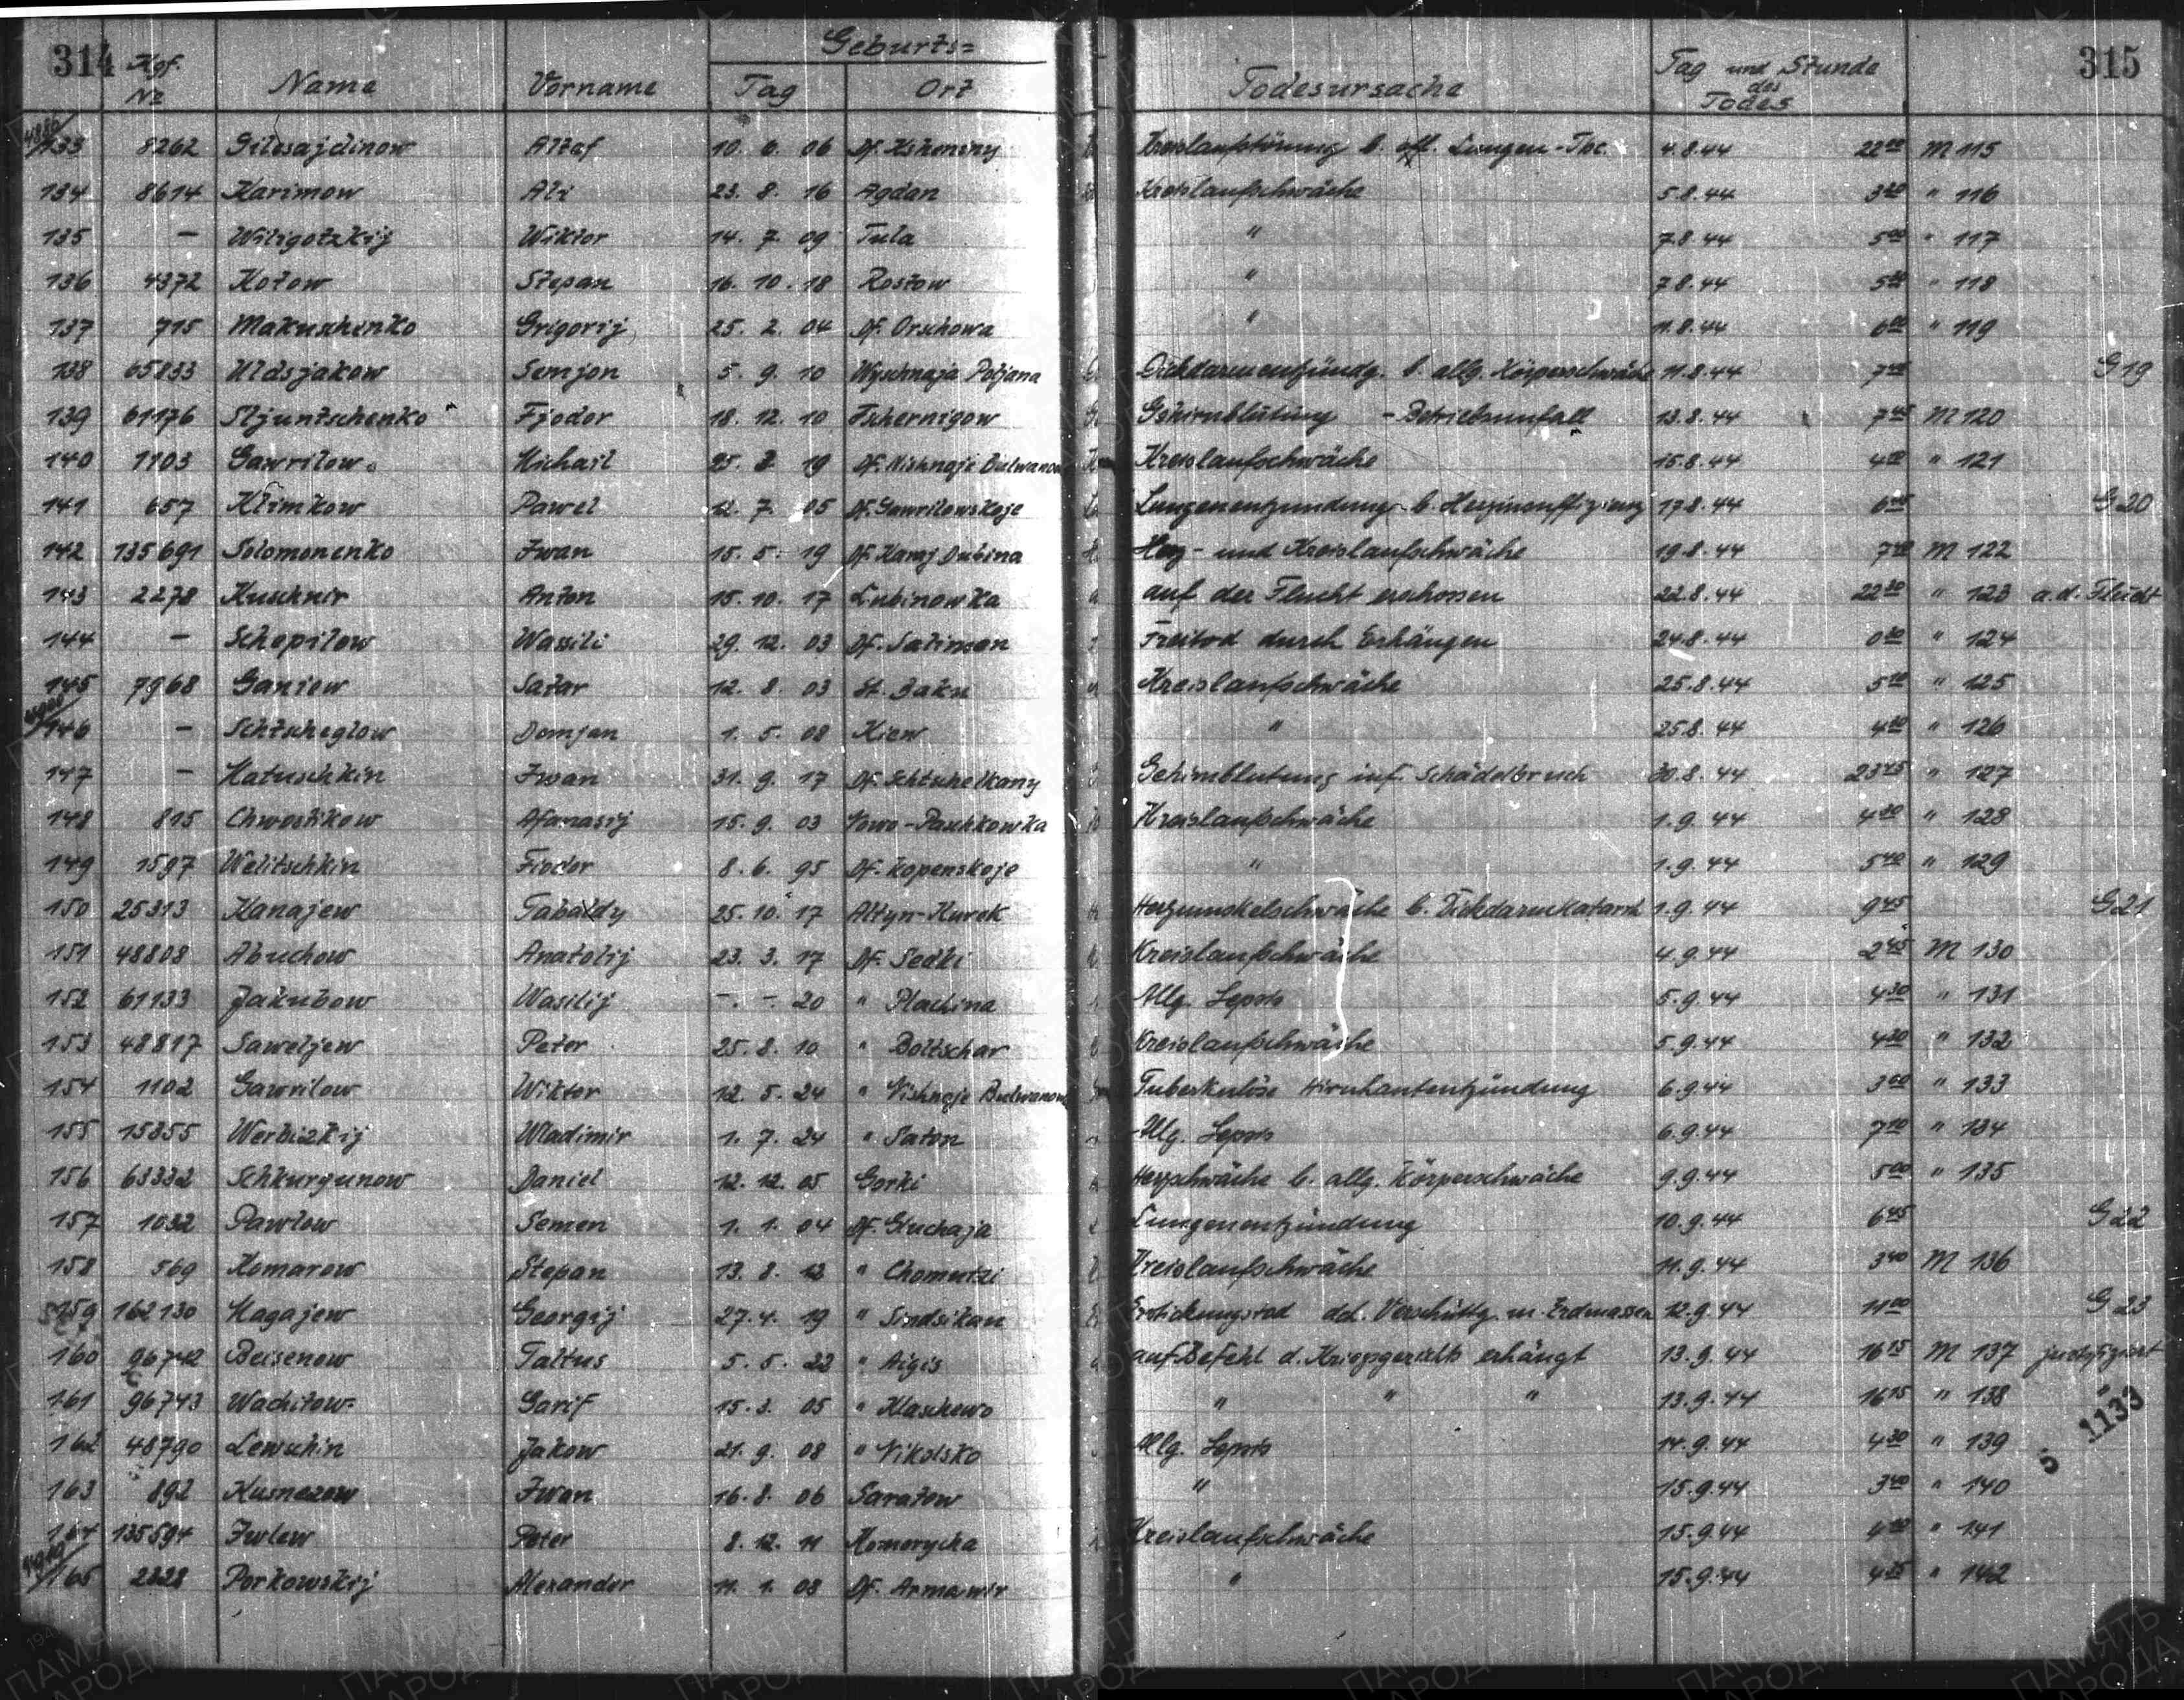 314 Kgf. Nr Name Vorname Geburts= Tag Ort Todesursache Tag und Stunde des Todes 315
133 8262 Altaf 10. 6. 06 Df. M 115 4.8.44 22⁰⁰
134 8614 Karimow Ali 23. 8. 16 Agdan Kreislaufschwäche 5.8.44 " 116
135 – Wiligotzkij Wiktor 14. 7. 09 Tula " 7.8.44 5⁰⁰ " 117
136 4372 Kotow Stepan 16. 10. 18 Rostow " 7.8.44 " 118
137 715 Makuschenko Grigorij 25. 2. 04 Df. Orschowa " 11.8.44 6⁰⁰ " 119
138 65833 Uldsjakow Semjon 5. 9. 10 Wyschnaja Poljana Dickdarmentzündg. b. allg. Körperschwäche 11.8.44 G 19
139 61176 Stjuntschenko Fjodor 18. 12. 10 Tschernigow Gehirnblutung - Betriebsunfall 13.8.44 7⁴⁵ M 120
140 1103 Gawrilow Michail 25. 2. 19 Df. Nishneje Bulwanow Kreislaufschwäche 15.8.44 4⁰⁰ " 121
141 657 Klimkow Pawel 12. 7. 05 Df. Gawrilowskoje Lungenentzündung b. Herzinsuffizienz 17.8.44 G 20
142 135691 Solomonenko Iwan 15. 5. 19 Df. Karaj Dubina Herz- und Kreislaufschwäche 19.8.44 M 122
143 2278 Kuschnir Anton 15. 10. 17 Lubinowka auf der Flucht erschossen 22.8.44 22³⁰ " 123 a.d. Flucht
144 – Schepilow Wassili 29. 12. 03 Df. Freitod durch Erhängen 24.8.44 " 124
145 7968 Ganiew Satar 12. 8. 03 St. Baku Kreislaufschwäche 25.8.44 5¹⁰ " 125
146 – Schtscheglow Demjan 1. 5. 08 Kiew " 25.8.44 " 126
147 – Matuschkin Iwan 31. 9. 17 Df. Schtschelkany Gehirnblutung inf. Schädelbruch 30.8.44 23⁴⁵ " 127
148 815 Chwostikow Afanasij 15. 9. 03 Nowo-Paschkowka Kreislaufschwäche 1.9.44 " 128
149 1597 Welitschkin Fiodor 8. 6. 95 Df. Kopenskoje " 1.9.44 5⁴⁰ " 129
150 25313 Kanajew Tabaldy 25. 10. 17 Altyn-Kurek Herzmuskelschwäche b. Dickdarmkatarrh 1.9.44 9⁴⁵ G 21
151 48808 Abuchow Anatolij 23. 3. 17 Df. Sedki Kreislaufschwäche 4.9.44 2⁴⁵ M 130
152 61133 Jakubow Wasilij –. –. 20 " Plachina Allg. Sepsis 5.9.44 4³⁰ " 131
153 48817 Saweljew Peter 25. 8. 10 " Boltschar Kreislaufschwäche 5.9.44 4³⁰ " 132
154 1102 Gawrilow Wiktor 12. 5. 24 " Nishneje Bulwanow Tuberkulöse Hirnhautentzündung 6.9.44 3⁰⁰ " 133
155 15855 Werbizkij Wladimir 1. 7. 24 " Saton Allg. Sepsis 6.9.44 7¹⁰ " 134
156 63332 Schkurgunow Daniel 12. 12. 05 Gorki Herzschwäche b. allg. Körperschwäche 9.9.44 5⁰⁰ " 135
157 1032 Pawlow Semen 1. 1. 04 Df. Gluchaja Lungenentzündung 10.9.44 6⁴⁵ G 22
158 569 Komarow Stepan 13. 8. 12 " Chomutzi Kreislaufschwäche 11.9.44 3⁴⁰ M 136
159 162130 Magajew Georgij 27. 4. 19 " Sindsikau Erstickungstod dch. Verschüttg. m. Erdmassen 12.9.44 11⁰⁰ G 23
160 96742 Beisenow Taltus 5. 5. 22 " Aigis auf Befehl d. Kriegsgerichts erhängt 13.9.44 16¹⁵ M 137 justifiziert
161 96743 Wachitow Garif 15. 3. 05 " Klaschewo " " " 13.9.44 16¹⁵ " 138 "
1133
162 48790 Lewschin Jakow 21. 9. 08 " Nikolsko Allg. Sepsis 14.9.44 4³⁰ " 139
163 892 Kusnezow Iwan 16. 8. 06 Saratow " 15.9.44 3⁴⁰ " 140
164 135594 Iwlew Peter 8. 12. 11 Komorycha Kreislaufschwäche 15.9.44 " 141
165 2328 Porkowskij Alexander 11. 1. 08 Df. Armawir " 15.9.44 " 142